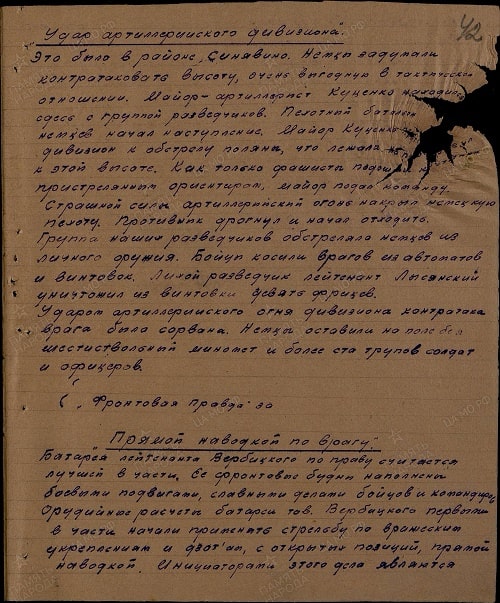 42
"Удар артиллерийского дивизиона".
Это было в районе Синявино. Немцы задумали
контратаковать высоту, очень выгодную в тактическом
отношении. Майор-артиллерист Куценко находился
здесь с группой разведчиков. Пехотный батальон
немцев начал наступление. Майор Куценко
дивизион к обстрелу поляны, что лежала
к этой высоте. Как только фашисты подош
пристрелянным ориентирам, майор подал команду.
Страшной силы артиллерийский огонь накрыл немецкую
пехоту. Противник дрогнул и начал отходить.
Группа наших разведчиков обстреляла немцев из
личного оружия. Бойцы косили врагов из автоматов
и винтовок. Лихой разведчик лейтенант Лысянский
уничтожил из винтовки девять фрицев.
Ударом артиллерийского огня дивизиона контратака
врага была сорвана. Немцы оставили на поле боя
шестиствольный миномет и более ста трупов солдат
и офицеров.
(„Фронтовая Правда" за
"Прямой наводкой по врагу".
Батарея лейтенанта Вербицкого по праву считается
лучшей в части. Ее фронтовые будни наполнены
боевыми подвигами, славными делами бойцов и командиров.
Орудийные расчеты батареи тов. Вербицкого первыми
в части начали применять стрельбу по вражеским
укреплениям и дзот'ам, с открытых позиций, прямой
наводкой. Инициаторами этого дела являются